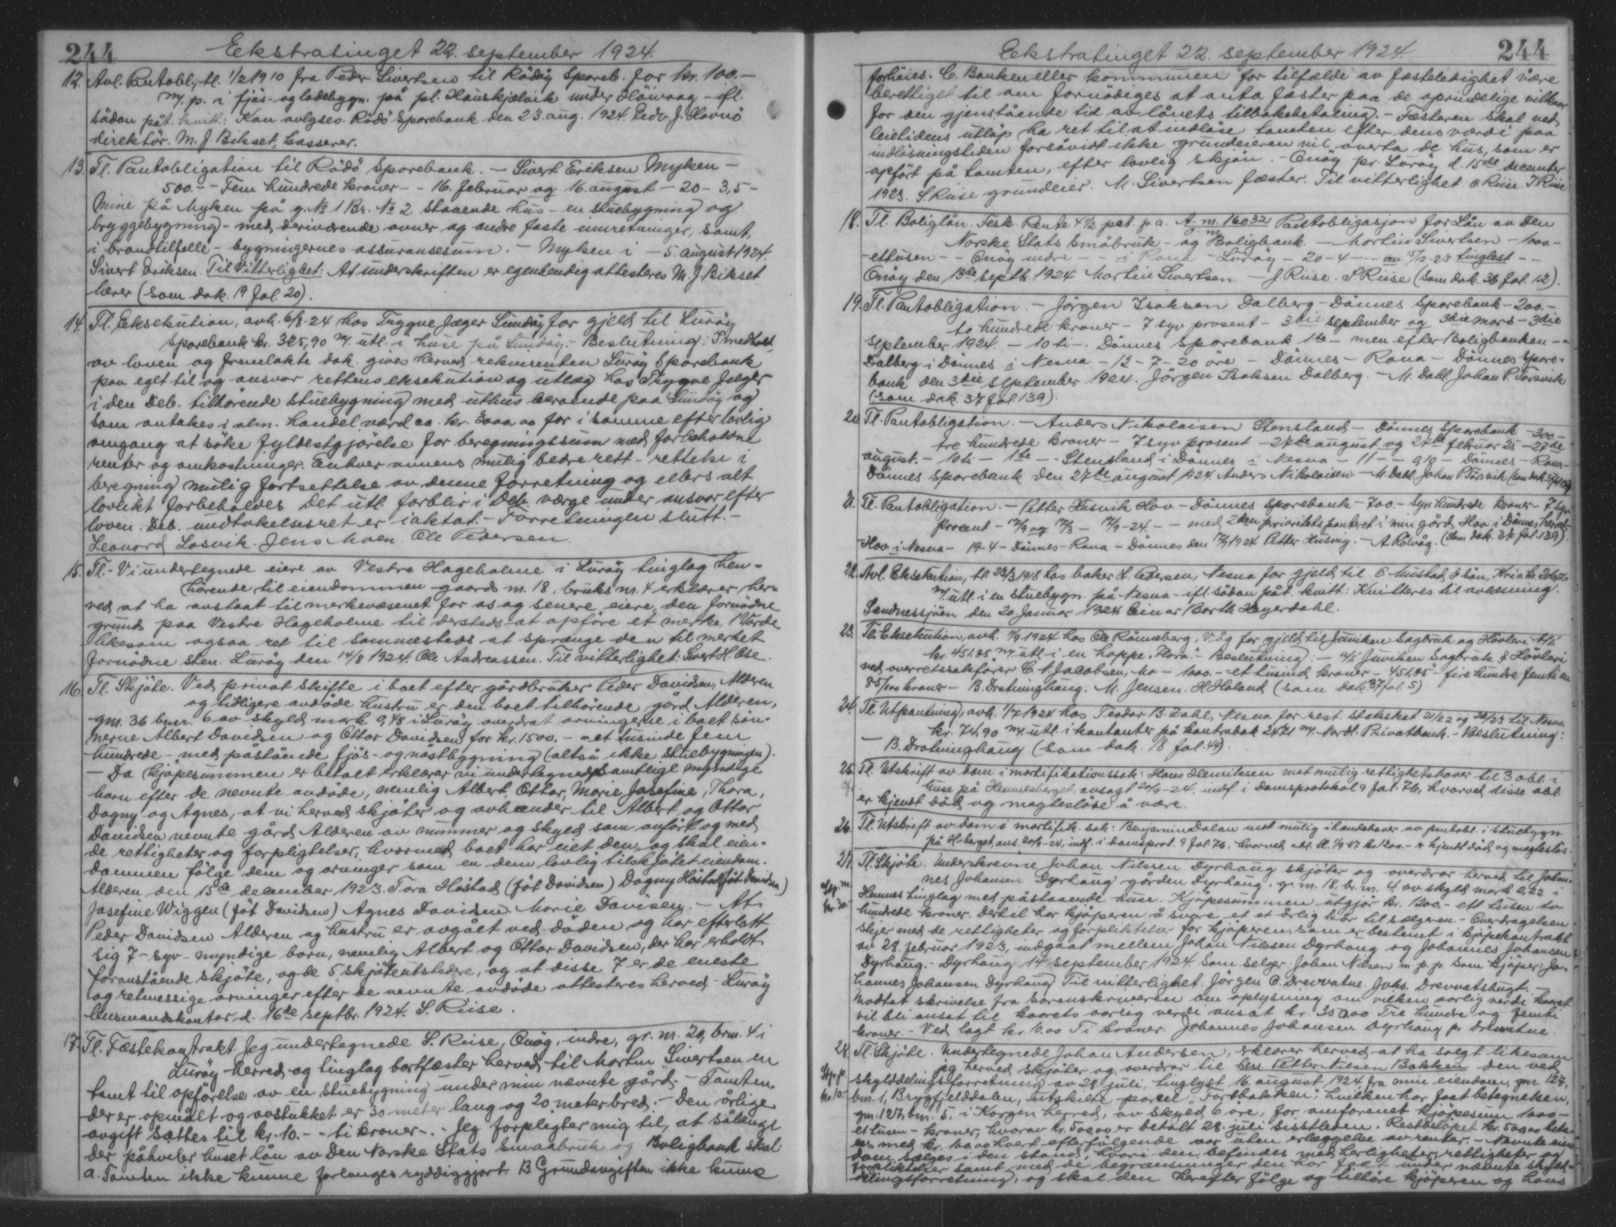 244
Ekstratinget 22. september 1924.
12. Avl. Pantobl., tl. 1/2 1910 fra Peder Sivertsen til Rödöy Spareb. for kr. 100.-
m/ p. i fjös- og ladebygn. på pl. Hauskjælvik under - ifl.
sådan påt. kvitt: Kan avlyses. Rödö Sparebank den 23 aug. 1924. Ludv. J. Hovnö
direktör. M. J. Bikset, kasserer.
13. Tl. Pantobligation til Rödö Sparebank. - Sivert Eriksen Myken -
500.- - Fem hundrede kroner - 16. februar og 16. august - 20 - 3,5 -
Mine på Myken på g. № 1 Br. № 2 staaende hus - en stuebygning og
bryggebygning - med derinværende ovner og andre faste innretninger, samt
i brandtilfelle - bygningernes assuransesum. - Myken i - 5. august 1924
Sivert Eriksen. Til Vitterlighet: At underskriften er egenhendig attesteres M. J. Bikset
lærer (Som dok. 19 fol. 20).
14. Tl. Eksekution, avh. 6/8-24 hos Trygve Jæger Sundöy for gjeld til Luröy
Sparebank kr. 325,90 m/ utl. i huse på Sundöy. - Beslutning: I medhold
av loven og fremlakte dok. gives herved rekvirenten Luröy Sparebank
paa eget til og ansvar rettens eksekution og utlæg hos Trygve Jæger
i den Deb. tilhörende stuebygning med uthus beroende paa Sundöy og
som antakes i alm. handel værd ca. kr. 3000.00 for i samme efter lovlig
omgang at söke fyldestgjörelse for beregningssum med forbeholdne
renter og omkostninger. Enhver annens mulig bedre rett - rettelse i
beregning mulig fortsettelse av denne forretning og ellers alt
lovlikt forbeholdes Det utl. forblir i Deb. værge under ansvar efter
loven. Deb. undtakelsesret er iaktat. - Forretningen slutt. -
Leonord Losvik. Jens Moen. Ole Pedersen.
15. Tl. - Vi undertegnede eiere av Vestre Hageholme i Luröy tinglag hen-
hörende til eiendommen gaards nr. 18, bruks nr. 4 erklærer her-
ved at ha avstaat til merkevæsenet for os og senere eiere, den fornödne
grund paa Vestre Hageholme til dersteds at opföre et merke, 1 Varde
likesom ogsaa ret til sammesteds at sprænge den til merket
fornödne sten. Luröy den 14/8 1924. Ole Andreassen. Til vitterlighet: Sivert H. Ose.
16. Tl. Skjöte. Ved privat skifte i boet efter gårdbruker Peder Davidsen, Alderen
og tidligere avdöde hustru er den boet tilhörende gård Alderen,
gnr. 36 bnr. 6 av skyld mark 0,48 i Luröy overdrat arvingerne i boet sön-
nerne Albert Davidsen og Ottar Davidsen for kr. 1500.- - et tusinde fem
hundrede - med påstånde fjös- og nöstbygning (altså ikke stuebygningen)
- Da kjöpesummen er betalt erklærer vi undertegnede samtlige myndige
barn efter de nevnte avdöde, nemlig Albert, Ottar, Marie Josefine, Thora,
Dagny og Agnes, at vi herved skjöter og avhænder til Albert og Ottar
Davidsen nevnte gård Alderen av nummer og skyld som anfört og med
de rettigheter og forpligtelser, hvormed boet har eiet den, og skal eien-
dommen fölge dem og arvinger som en dem lovlig tilskjötet eiendom.
Alderen den 15de december 1923. Tora Höstad (föt Davidsen) Dagny Höstad (föt Davidsen)
Josefine Wiggen (föt Davidsen) Agnes Davidsen Marie Davisen. - At
Peder Davidsen Alderen og hustru er avgået ved döden og har efterlatt
sig 7 - syv - myndige barn, nemlig Albert og Ottar Davidsen, der har erholdt
foranstående skjöte, og de 5 skjöteutstedere, og at disse 7 er de eneste
og retmessige arvinger efter de nevnte avdöde attesteres herved. - Luröy
lensmandskontor, d. 16de septbr. 1924. S. Riise.
17. Tl. Fæstekontrakt Jeg undertegnede S. Riise, Onöy, indre, gr. nr. 20, brnr. 4 i
Luröy herred og tinglag bortfæster herved til Martin Sivertsen en
tomt til opförelse av en stuebygning under min nævnte gård. - Tomten
der er opmålt og avstukket er 30 meter lang og 20 meter bred. - Den årlige
avgift sættes til kr. 10.- - ti kroner -. - Jeg forpligter mig til, at sålænge
der påhviler huset lån av Den Norske Stats Småbruk og Boligbank skal
a. Tomten ikke kunne forlanges ryddiggjort B Grundavgiften ikke kunne
Ekstratinget 22. september 1924
244
forhöies. C. Banken eller kommunen for tilfælde av fæsteledighet være
berettiget til om fornödiges at anta fæster paa de oprindelige vilkaar
for den gjenstående tid av lånets tilbakebetaling. - Fæsteren skal ved
leietidens utlöp ha ret til at indlöse tomten efter dens værdi paa
indlösningstiden forsåvidt ikke grundeieren vil överta de hus, som er
opfört på tomten, efter lovlig skjön. - Onöy pr. Luröy d. 15de december
1923. S. Riise grundeier. M. Sivertsen fæster. Til vitterlighet O Riise. J. Riise
18. Tl. Boliglån. Fesk Rente 4½ pct p.a. A. nr. 16032 Pantobligasjon for Lån av Den
Norske Stats Småbruk- og Boligbank. - Martin Sivertsen - 1000.-
ettusen - - Onöy indre - - i Rana - Luröy - 20-4 - - - tinglest - -
Onöy den 19de septb. 1924 Martin Sivertsen - J. Riise. S. Riise (Som dok. 26 fol. 12).
19. Tl. Pantobligation. - Jörgen Isaksen Dalberg - Dönnes Sparebank - 200.-
to hundrede kroner - 7 syv prosent - 3die September og 3die mars - 3die
September 1924 - 10 ti - Dönnes Sparebank 1ste - men efter Boligbanken - -
Dalberg i Dönnes i Nesna - 12-7-20 öre - Dönnes - Rana - Dönnes Spare-
bank den 3die September 1924. Jörgen Isaksen Dalberg. - M. Dahl Johan P. Forsvik
(Som dok. 37 fol. 139).
20. Tl. Pantobligation. - Anders Nikolaisen Stensland - Dönnes Sparebank - 300.-
tre hundrede kroner - 7 syv prosent - 27de august og 27de februar 25 - 27de
august. - 10 ti - 1ste - Stensland i Dönnes i Nesna - 11 - - Dönnes - Rana -
Dönnes Sparebank den 27de august 1924 Anders Nikolaisen - M Dahl. Johan P. Forsvik
21. Tl. Pantobligation. - Petter Husvik Hov - Dönnes Sparebank - 700.- Syv hundrede kroner - 7 syv
procent - - med 2den prioritets panteret i min gård Hov i Dönnes herred -
Hov i Nesna - 19-4 - Dönnes - Rana - Dönnes den 1924 Petter Husvig. - A. Rölvåg. (Som dok. 38 fol. 139).
22. Avl. Eksekution, tl. 23/3 1918 hos baker H. Pedersen, Nesna for gjeld til O. Mustad & Sön, Kria
m/ utl. i en stuebygn. på Nesna - ifl. sådan påt. kvitt: Kvitteres til avlesning.
Sandnessjöen den 20 januar 1924 Einar Borth Heyerdahl.
23. Tl. Eksekution, avh. 1924 hos Ole Rönneberg, Våg for gjeld til Juviken Sagbruk og Hövleri A/S
kr. 451.85 m/ utl. i en hoppe "Flora". Beslutning: - A/S Juviken Sagbruk & Hövleri
ved overretssakförer C. N. Jacobsen, Mo - 1000.- et tusind kroner - 451,85 - fire hundre femti en
85/100 kroner - B. Dronninghaug. M. Jensen. H. Höland (Som dok. 37 fol. 5)
24. Tl. Utpantning, avh. 1/7 1924 hos Teodor B. Zahl, Nesna for rest. skat 21/22 og 22/23 til Nesna
kr. 74,90 m/ utl. i kontanter på kontrabok 2471 m/ Nordl. Privatbank. - Beslutning:
- B. Dronninghaug (Som dok. 18 fol. 49).
25. Tl. Utskrift av dom i mortifikationssak: Hans Henriksen mot mulig rettighetshaver til 3 obl. i
huse på Hemnesberget avsagt -24, indf. i domsprotokol 9 fol. 76, hvorved disse obl.
er kjendt död og magteslöse å være.
26. Tl. Utskrift av dom i mortifik. sak: Benjamin Dalen mot mulig ihændehaver av pantobl. i stuebygn.
på H-berget, avs. , indf. i domsprot. 9 fol. 76. hvorved - er kjendt död og magteslös.
27. Tl. Skjöte. Underskrevne Johan Nilssen Dyrhaug skjöter og overdrar herved til Johan-
nes Johansen Dyrhaug gården Dyrhaug, gr. nr. 18, br. nr. 4 av skyld mark 0,22 i
Hemnes tinglag med påstaaende huse. Kjöpesummen utgjör kr. 1200.- ett tusen to
hundrede kroner. Dertil har kjöperen å svare et årlig kår til sælgeren. - Overdragelsen
skjer med de rettigheter og forpliktelser for kjöperen som er bestemt i kjöpekontrakt
av 28. februar 1923, indgaat mellem Johan Nilssen Dyrhaug og Johannes Johansen
Dyrhaug. - Dyrhaug 17 september 1924 Som selger Johan Nilssen m. p. p. Som kjöper: Jo-
hannes Johansen Dyrhaug Til vitterlighet: Jörgen O. Drevvatne. Johs. Drevvatshaug. -
Modtat skrivelse fra Sorenskriveren om oplysning om vilken aarlig værdi kaaret
vil bli ansat til kaarets aarlig verdi ansat kr. 350.00 Tre hundre og femti
kroner - Ved lagt kr. 10.00 Ti kroner Johannes Johansen Dyrhaug pr. Drevvatne.
28. Tl. Skjöte. Undertegnede Johan Andersen, erklærer herved at ha solgt likesom
jeg herved skjöter og overdrar til hr. Petter Nilsen Bakken den ved
skylddelingsforretning av 28. juli, tinglyst 16. august 1924 fra min eiendom, gnr. 127,
bnr. 1, Bryggfjelddalen, utskilte parcel "Fortbakken" hvilken har faat betegnelsen,
gnr. 127, bnr. 5, i Korgen herred, av skyld 6 öre, for omforenet kjöpesum 1000.-
et tusen - kroner, hvorav kr. 500.00 er betalt 28. juli sisstleden. Restbelöpet kr. 500.00 beta-
les med kr. 100.00 hvert efterfölgende aar uten erlæggelse av renter. - Nævnte eien-
dom sælges i den stand, hvori den befindes med herligheter, rettigheter og
forpliktelser samt med de begrænsninger den har faat under nævnte skyld-
delingsforretning, og skal den herefter fölge og tilhöre kjöperen og hans